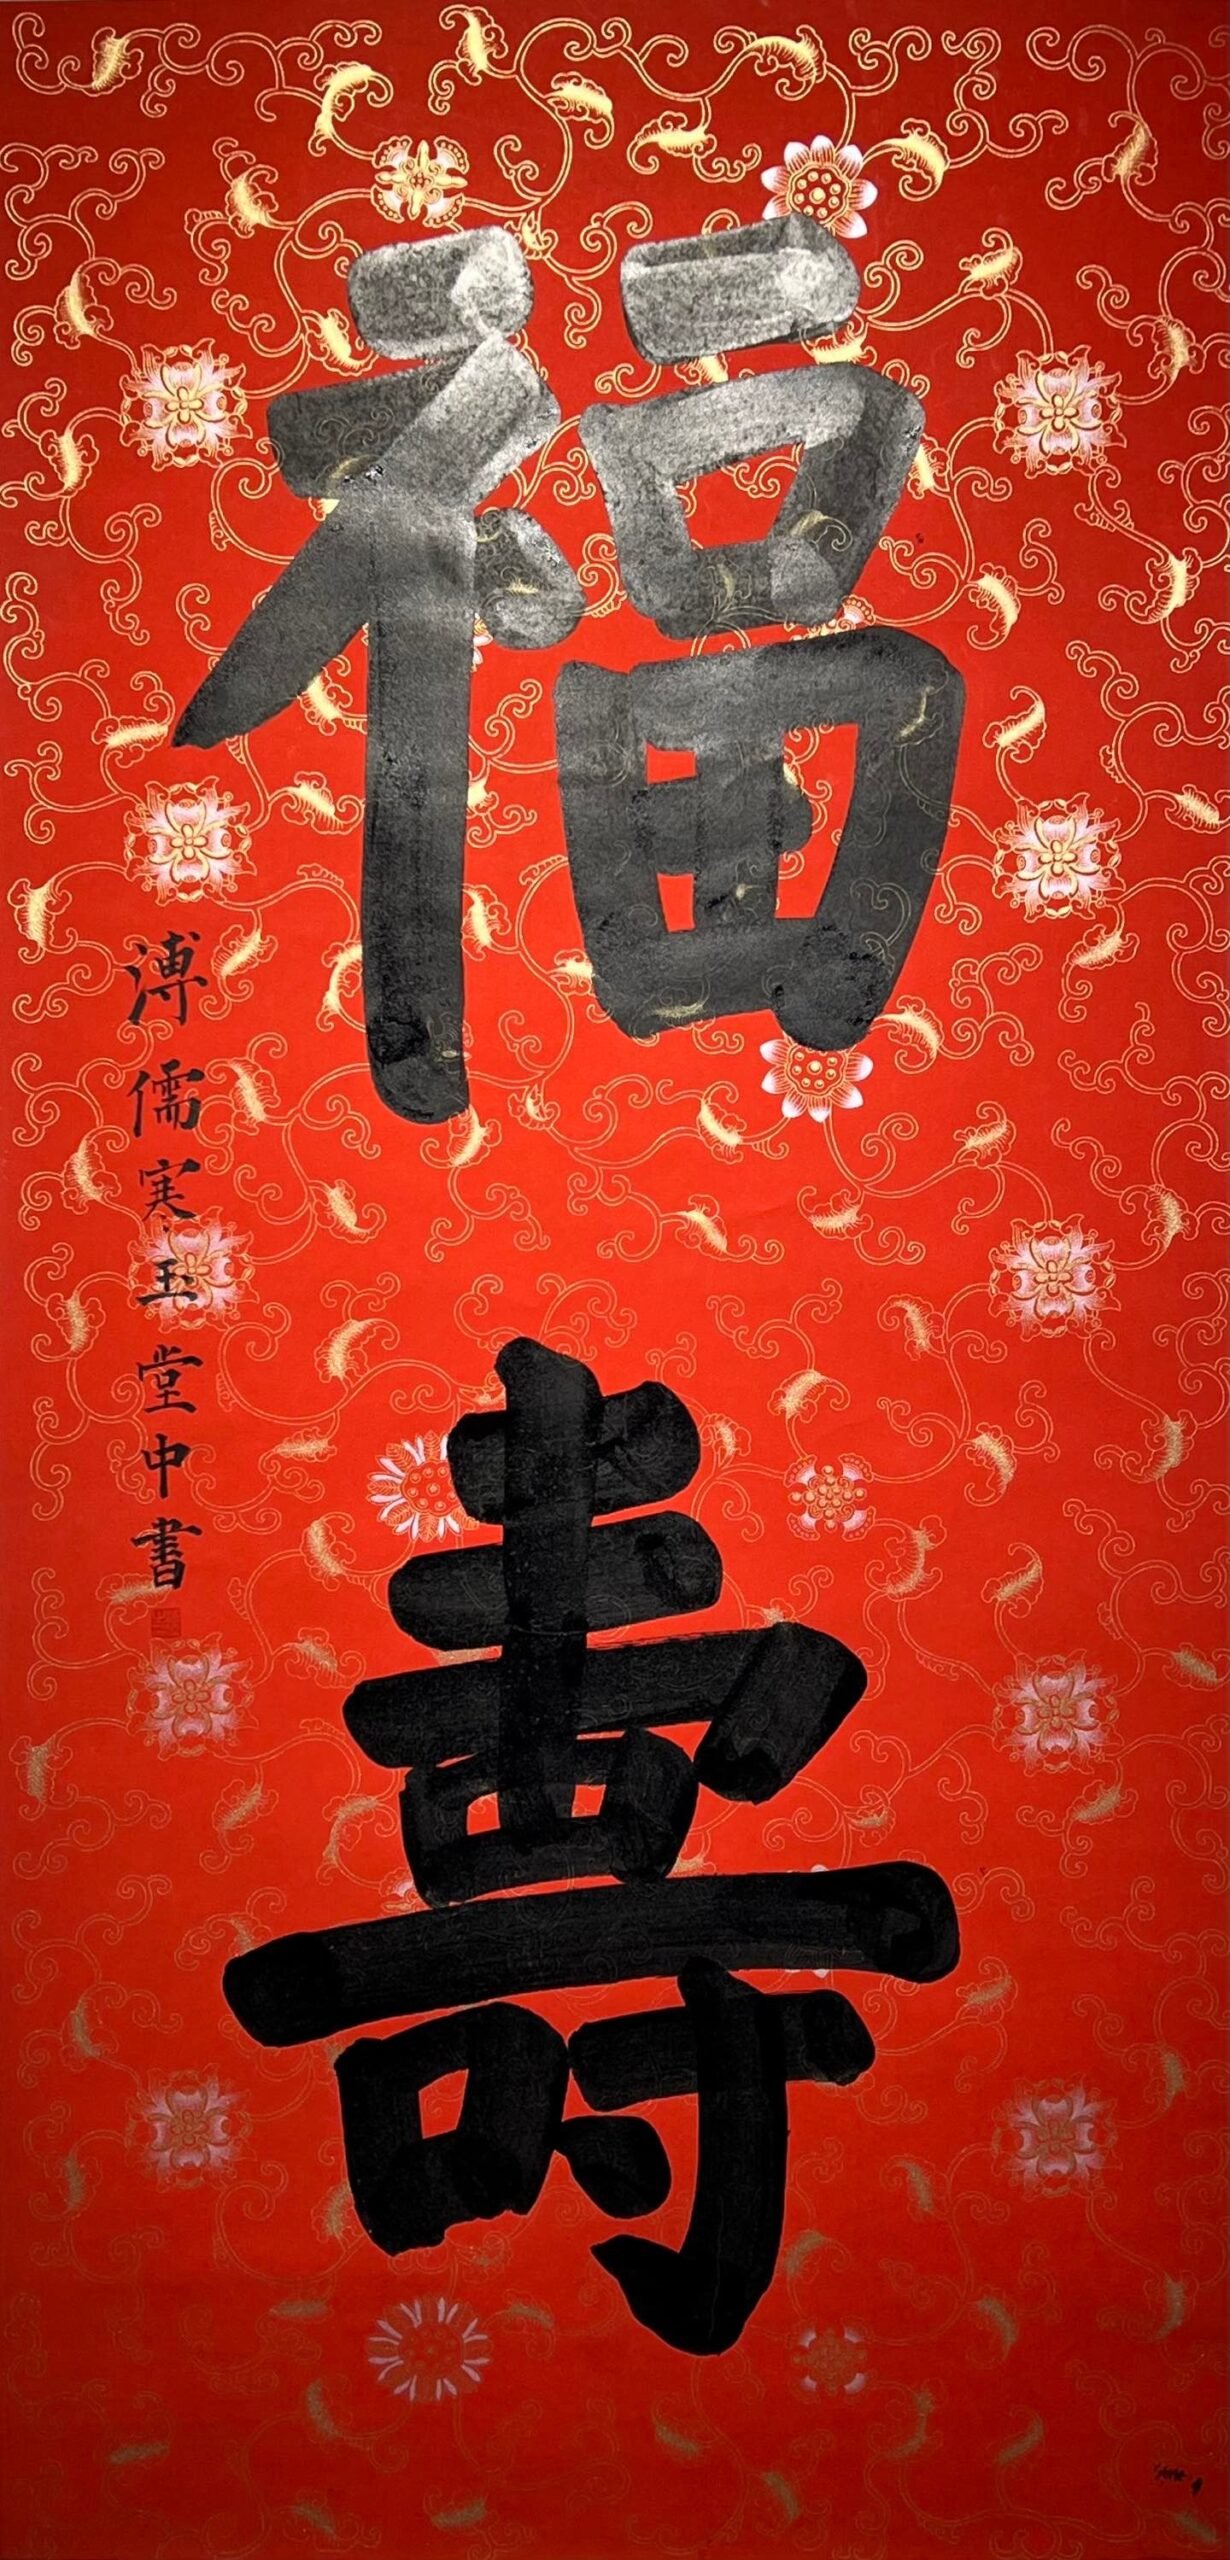 福壽
溥儒寒玉堂中書